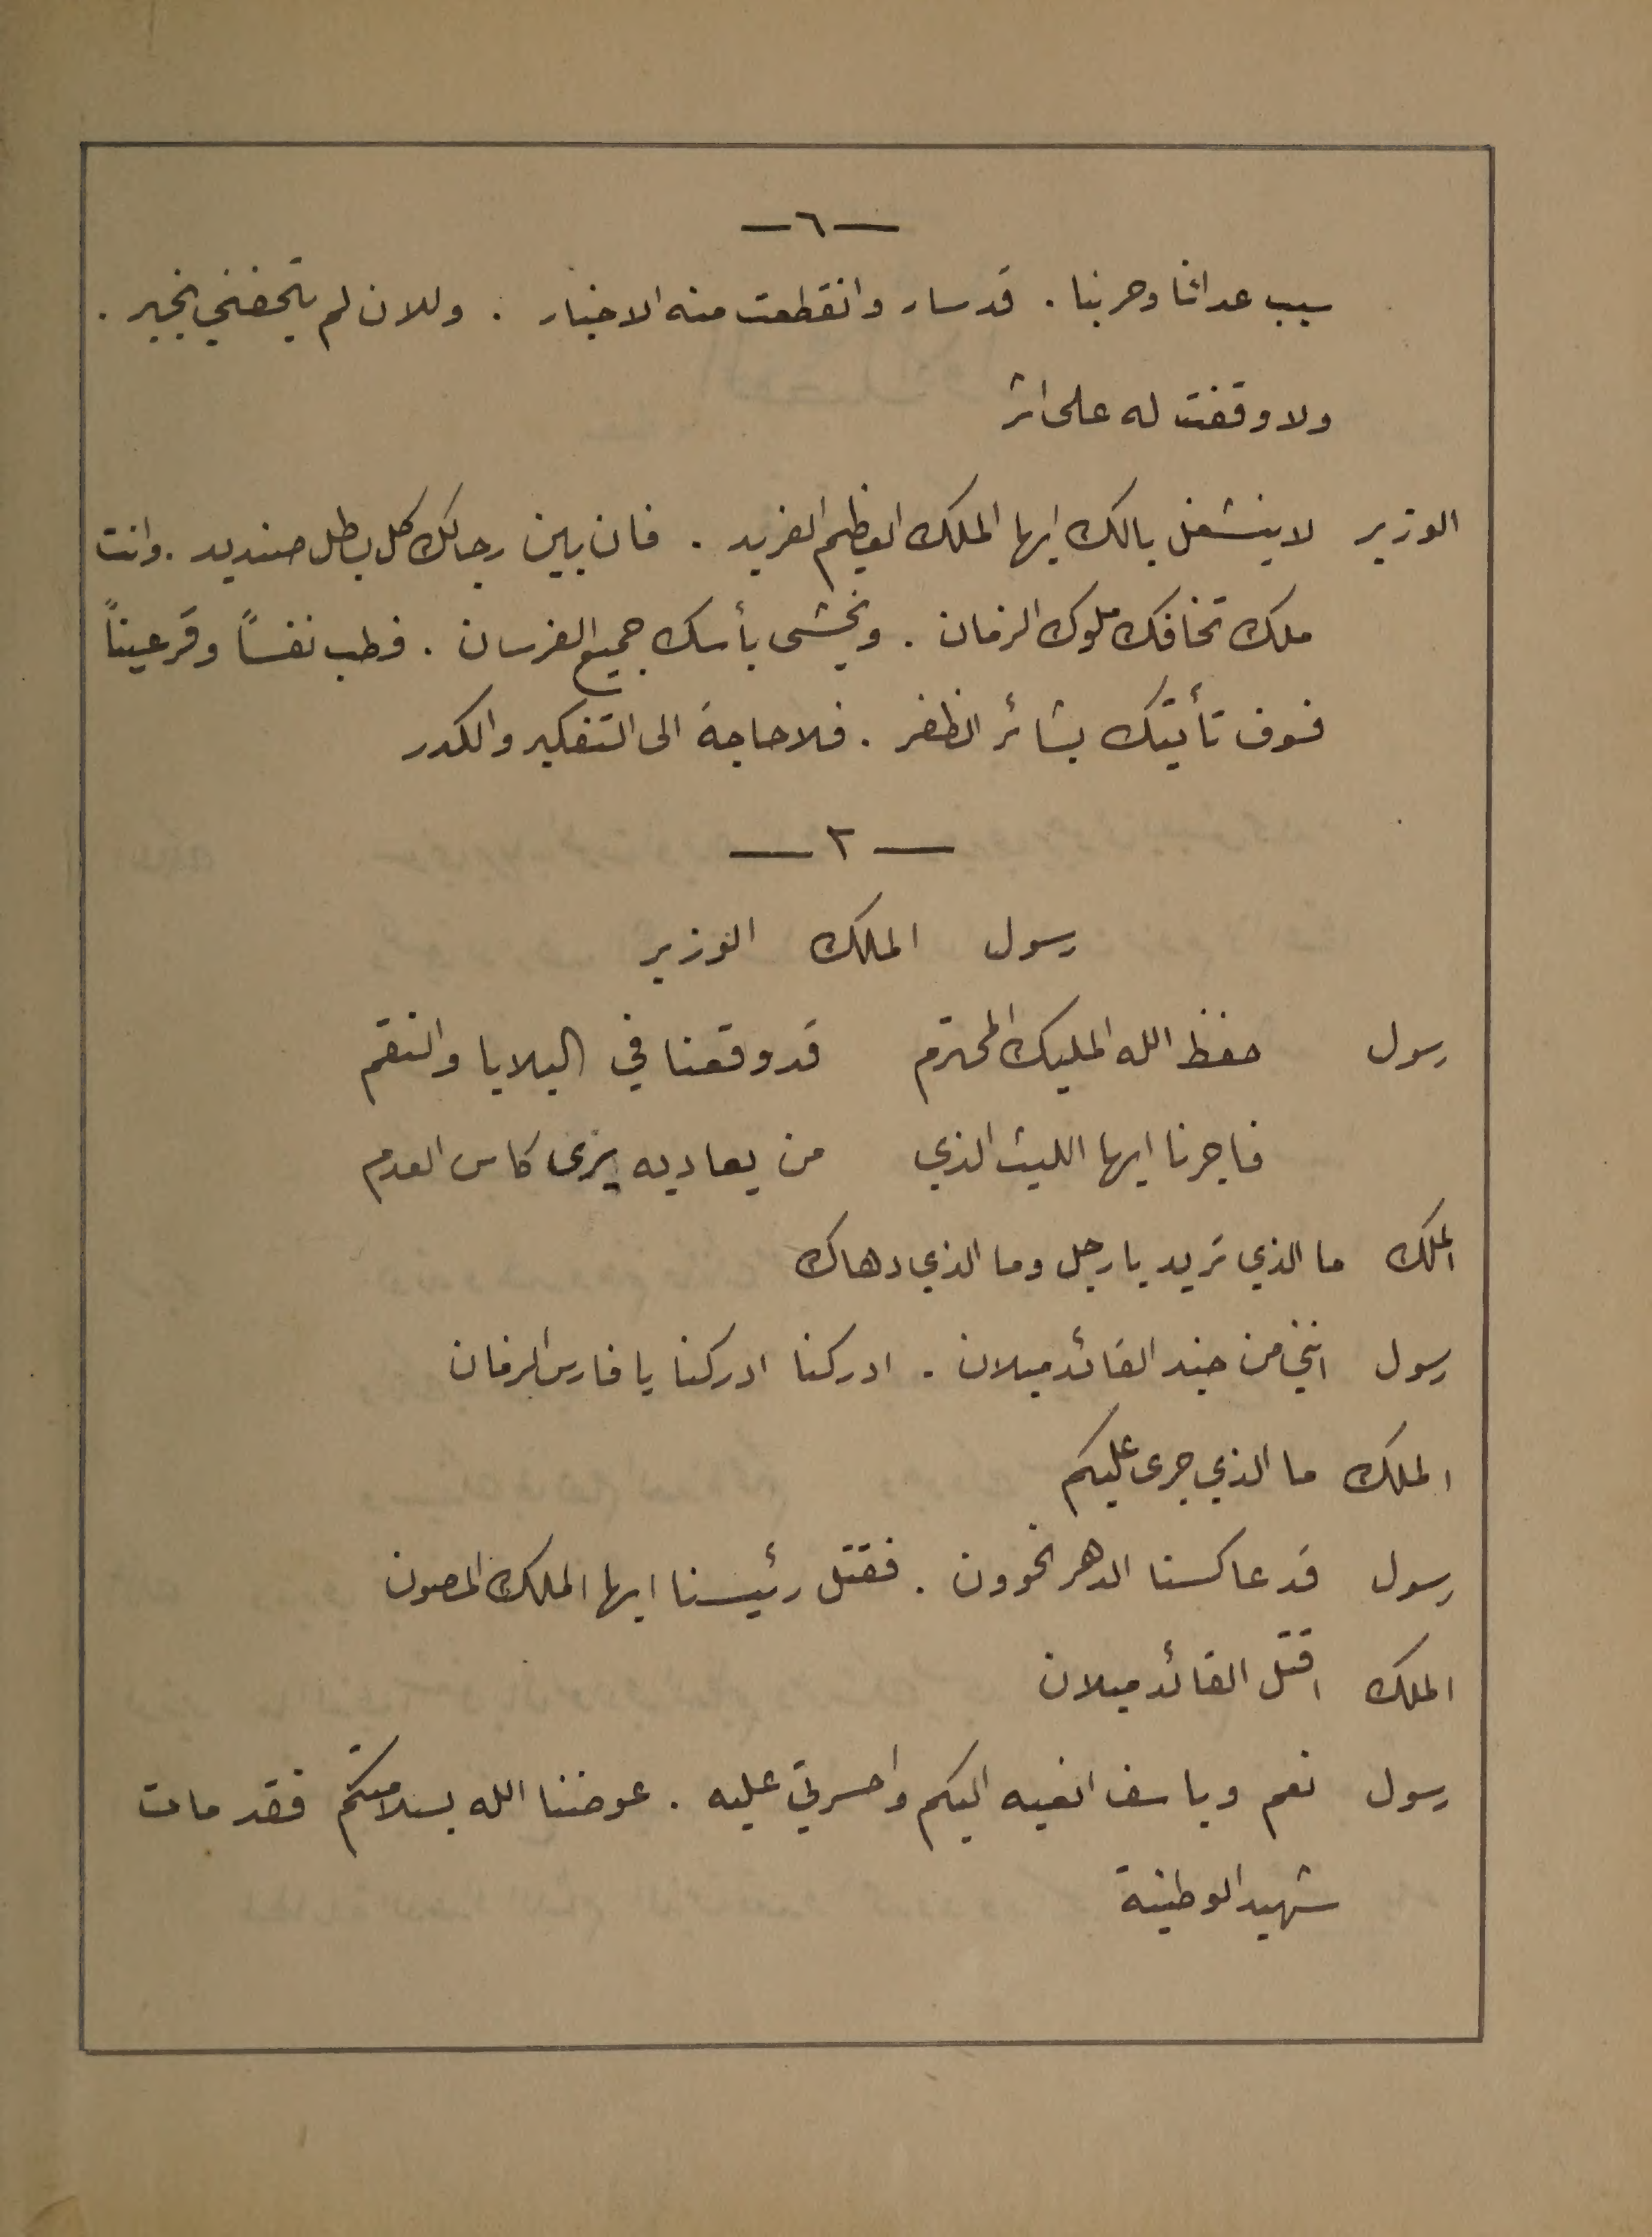 —٦—
سبب عدائنا وحربنا . قد سار وانقطعت منه الاخبار . وللان لم يتحفني بخبر .
ولا وقفت له على اثر
الوزير لا ينشغل بالك ايها الملك العظيم الفريد . فان بين رجالك كل بطل صنديد . وانت
ملك تخافك ملوك الزمان . ويخشى بأسك جميع الفرسان . فطب نفساً وقر عيناً
فسوف تأتيك بشائر الظفر . فلا حاجة الى التفكير والكدر
— ٢ —
رسول الملك الوزير
رسول حفظ الله المليك المحترم قد وقعنا في البلايا والنقم
فاجرنا ايها الليث الذي من يعاديه يرى كاس العدم
الملك ما الذي تريد يا رجل وما الذي دهاك
رسول انني من جند القائد ميلان . ادركنا ادركنا يا فارس الزمان
الملك ما الذي جرى عليكم
رسول قد عاكسنا الدهر الخوون . فقتل رئيسنا ايها الملك المصون
الملك اقتل القائد ميلان
رسول نعم وباسف انعيه اليكم واحسرتي عليه . عوضنا الله بسلامتكم فقد مات
شهيد الوطنية